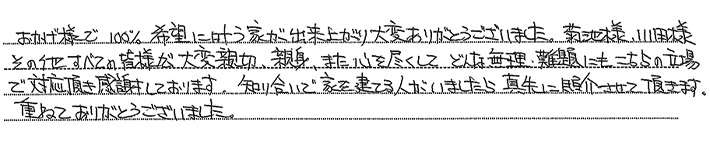 おかげ様で100%希望に叶う家が出来上がり大変ありがとうございました。菊池様、川田様
その他すべての皆様が大変親切、親身、また心を尽くして どんな無理・難題にもこちらの立場
で対応頂き感謝しております。知り合いで家を建てる人がいましたら真先に紹介させて頂きます。
重ねてありがとうございました。